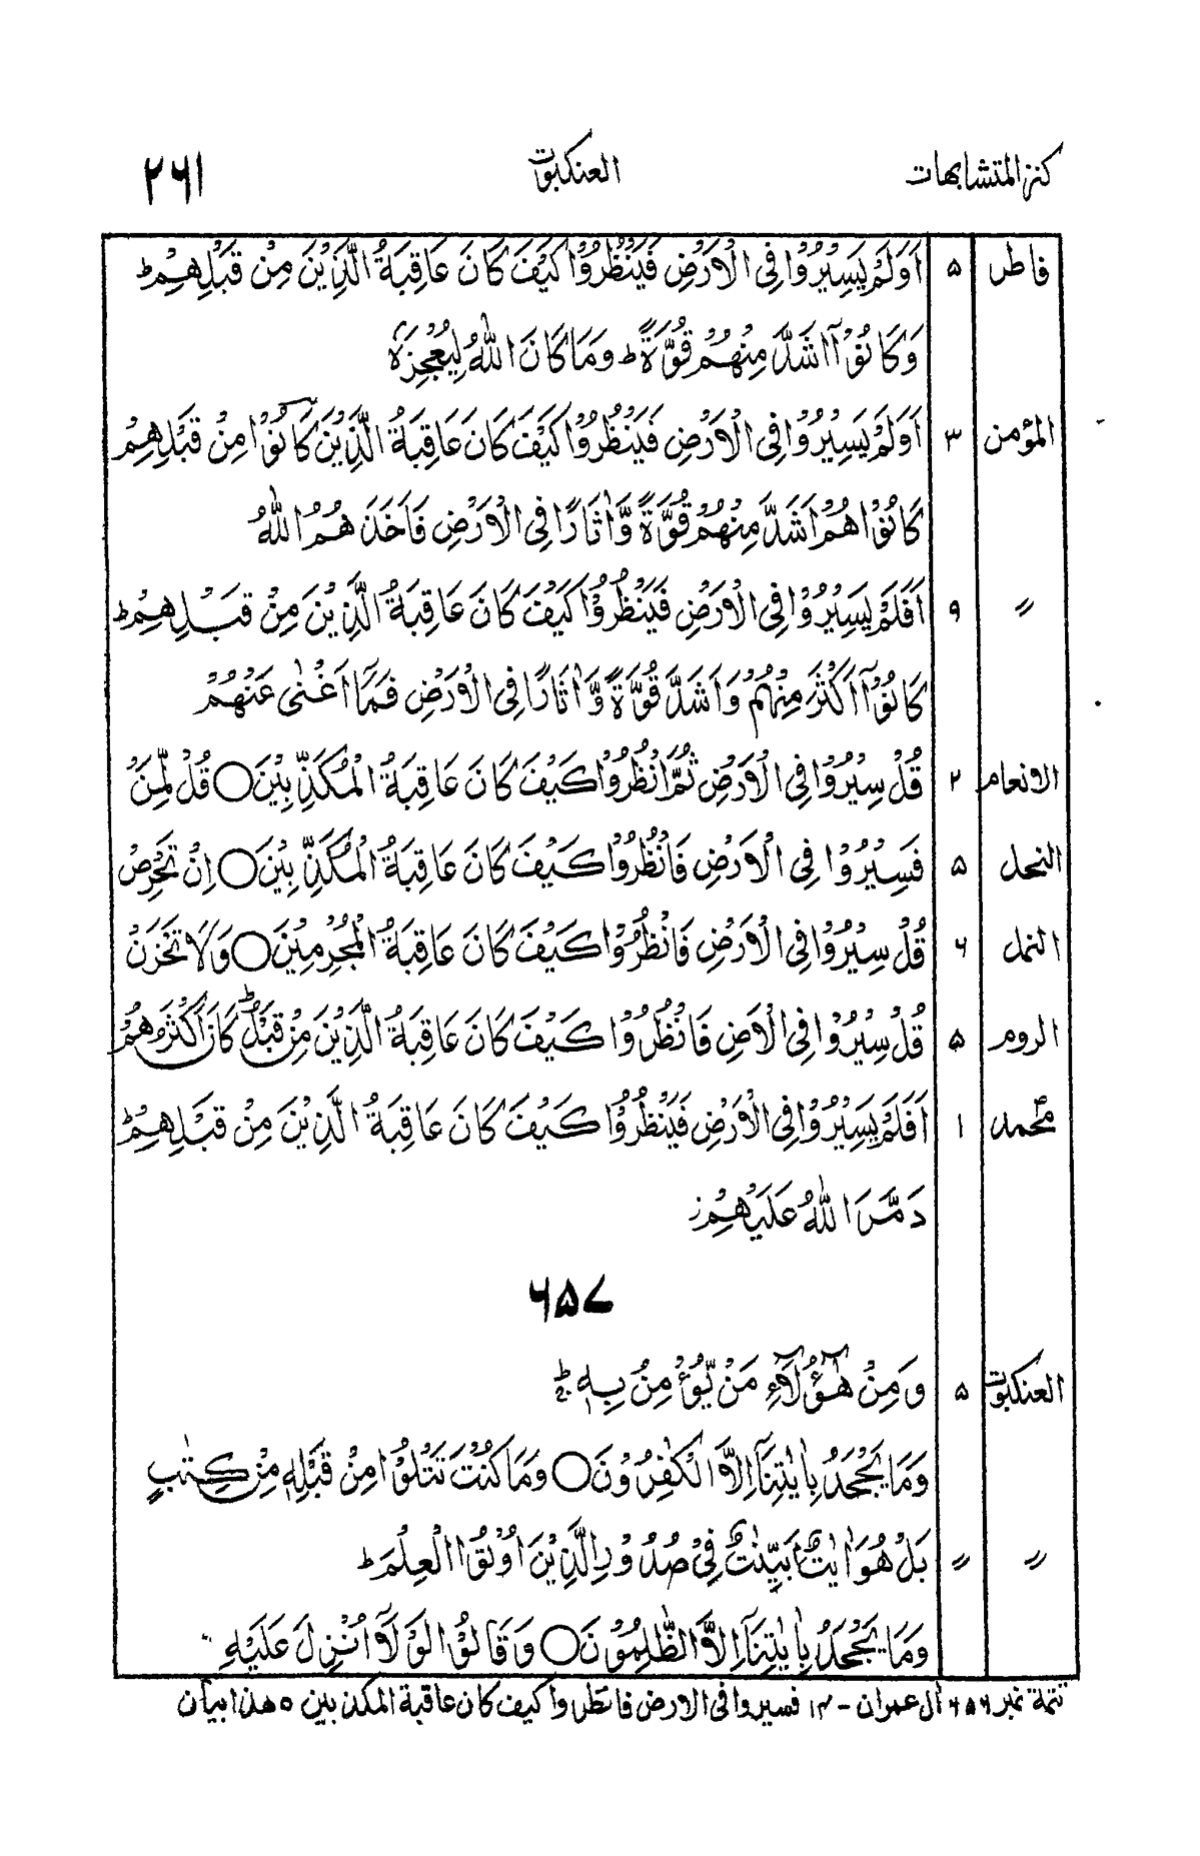 كنز المتشابهات العنكبوت ٢٦١
فاطر ۵ اَوَلَمْ يَسِيْرُوْا فِى الْاَرْضِ فَيَنْظُرُوْا كَيْفَ كَانَ عَاقِبَةُ الَّذِيْنَ مِنْ قَبْلِهِمْ ط
وَكَانُوْۤا اَشَدَّ مِنْهُمْ قُوَّةً ط وَمَا كَانَ اللّٰهُ لِيُعْجِزَهٗ
المؤمن ٣ اَوَلَمْ يَسِيْرُوْا فِى الْاَرْضِ فَيَنْظُرُوْا كَيْفَ كَانَ عَاقِبَةُ الَّذِيْنَ كَانُوْا مِنْ قَبْلِهِمْ
كَانُوْا هُمْ اَشَدَّ مِنْهُمْ قُوَّةً وَّاٰثَارًا فِى الْاَرْضِ فَاَخَذَ هُمُ اللّٰهُ
〃 ٩ اَفَلَمْ يَسِيْرُوْا فِى الْاَرْضِ فَيَنْظُرُوْا كَيْفَ كَانَ عَاقِبَةُ الَّذِيْنَ مِنْ قَبْلِهِمْ ط
كَانُوْۤا اَكْثَرَ مِنْهُمْ وَاَشَدَّ قُوَّةً وَّاٰثَارًا فِى الْاَرْضِ فَمَاۤ اَغْنٰى عَنْهُمْ
الانعام ٢ قُلْ سِيْرُوْا فِى الْاَرْضِ ثُمَّ انْظُرُوْا كَيْفَ كَانَ عَاقِبَةُ الْمُكَذِّبِيْنَ ○ قُلْ لِّمَنْ
النحل ۵ فَسِيْرُوْا فِى الْاَرْضِ فَانْظُرُوْا كَيْفَ كَانَ عَاقِبَةُ الْمُكَذِّبِيْنَ ○ اِنْ تَحْرِصْ
النمل ۶ قُلْ سِيْرُوْا فِى الْاَرْضِ فَانْظُرُوْا كَيْفَ كَانَ عَاقِبَةُ الْمُجْرِمِيْنَ ○ وَلَا تَحْزَنْ
الروم ۵ قُلْ سِيْرُوْا فِى الْاَرْضِ فَانْظُرُوْا كَيْفَ كَانَ عَاقِبَةُ الَّذِيْنَ مِنْ قَبْلُ ط كَانَ اَكْثَرُهُمْ
محمد ١ اَفَلَمْ يَسِيْرُوْا فِى الْاَرْضِ فَيَنْظُرُوْا كَيْفَ كَانَ عَاقِبَةُ الَّذِيْنَ مِنْ قَبْلِهِمْ ط
دَمَّرَ اللّٰهُ عَلَيْهِمْ ز
۶۵۷
العنكبوت ۵ وَمِنْ هٰۤؤُلَآءِ مَنْ يُّؤْمِنُ بِهٖ ط
وَمَا يَجْحَدُ بِاٰيٰتِنَاۤ اِلَّا الْكٰفِرُوْنَ ○ وَمَا كُنْتَ تَتْلُوْا مِنْ قَبْلِهٖ مِنْ كِتٰبٍ
〃 〃 بَلْ هُوَ اٰيٰتٌۢ بَيِّنٰتٌ فِيْ صُدُوْرِ الَّذِيْنَ اُوْتُوا الْعِلْمَ ط
وَمَا يَجْحَدُ بِاٰيٰتِنَاۤ اِلَّا الظّٰلِمُوْنَ ○ وَقَالُوْا لَوْ لَاۤ اُنْزِلَ عَلَيْهِ
تتمة نمبر ۶۵۶ اٰل عمران - ١٤ فسيروا فى الارض فانظروا كيف كان عاقبة المكذبين ٥ هذا بيان